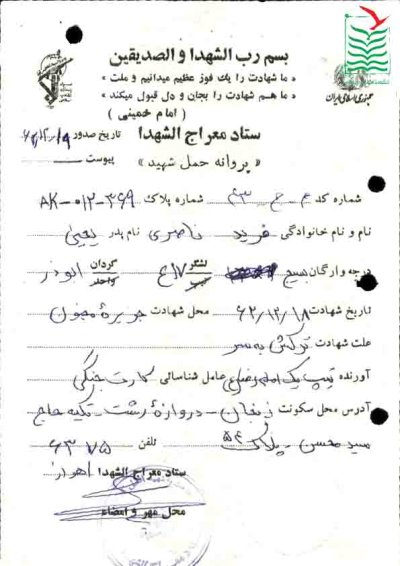 بسم رب الشهدا و الصدیقین
« ما شهادت را یك فوز عظیم میدانیم و ملت »
« ما هـم شهادت را بجان و دل قبول میکند »
( امام خمینی )
جمهوری اسلامی ایران
ستاد معراج الشهدا
تاریخ صدور ۶۲/۱۲/۱۹
« پروانه حمل شهید »
پیوست
شماره کد ع - ح - ۴۳ شماره پلاک AK-۰۱۲-۳۶۹
نام و نام خانوادگی فرید ناصری نام پدر یحیی
درجه و ارگان بسیج لشگر ۱۷ع گردان ابوذر
تیپ واحد
تاریخ شهادت ۶۲/۱۲/۱۸ محل شهادت جزیرهٔ مجنون
علت شهادت ترکش به سر
آورنده تیپ یک امام رضا(ع) عامل شناسائی کارت جنگی
آدرس محل سکونت زنجان - دروازهٔ رشت - تکیه حاج
سید محسن - پلاک ۵۴ تلفن ۶۳۷۵
ستاد معراج الشهدا اهواز
محل مهر و امضاء